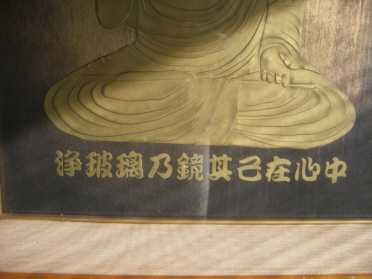 浄玻璃乃鏡其己在心中